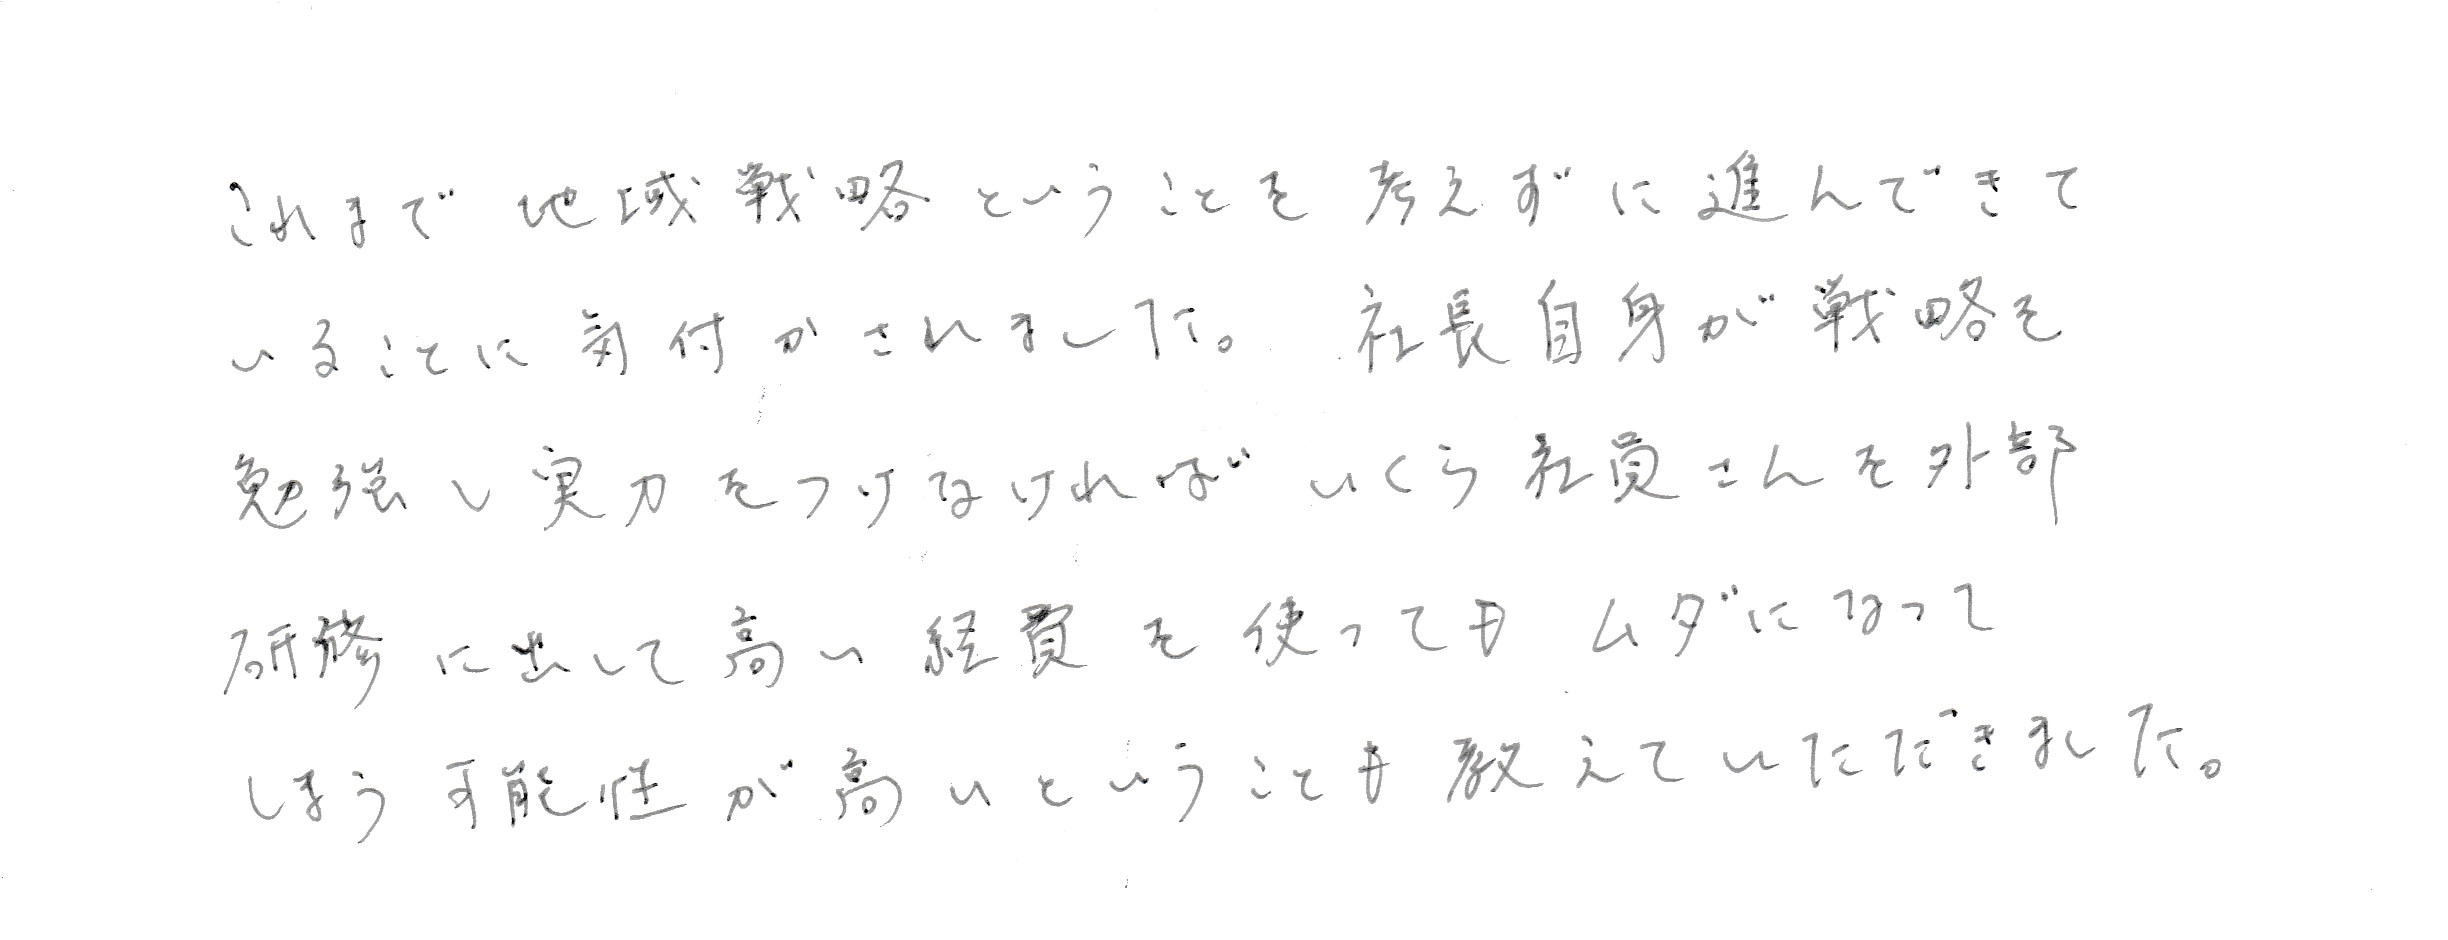 これまで地域戦略ということを考えずに進んできて
いることに気付かされました。社長自身が戦略を
勉強し実力をつけなければいくら社員さんを外部
研修に出して高い経費を使ってもムダになって
しまう可能性が高いということも教えていただきました。